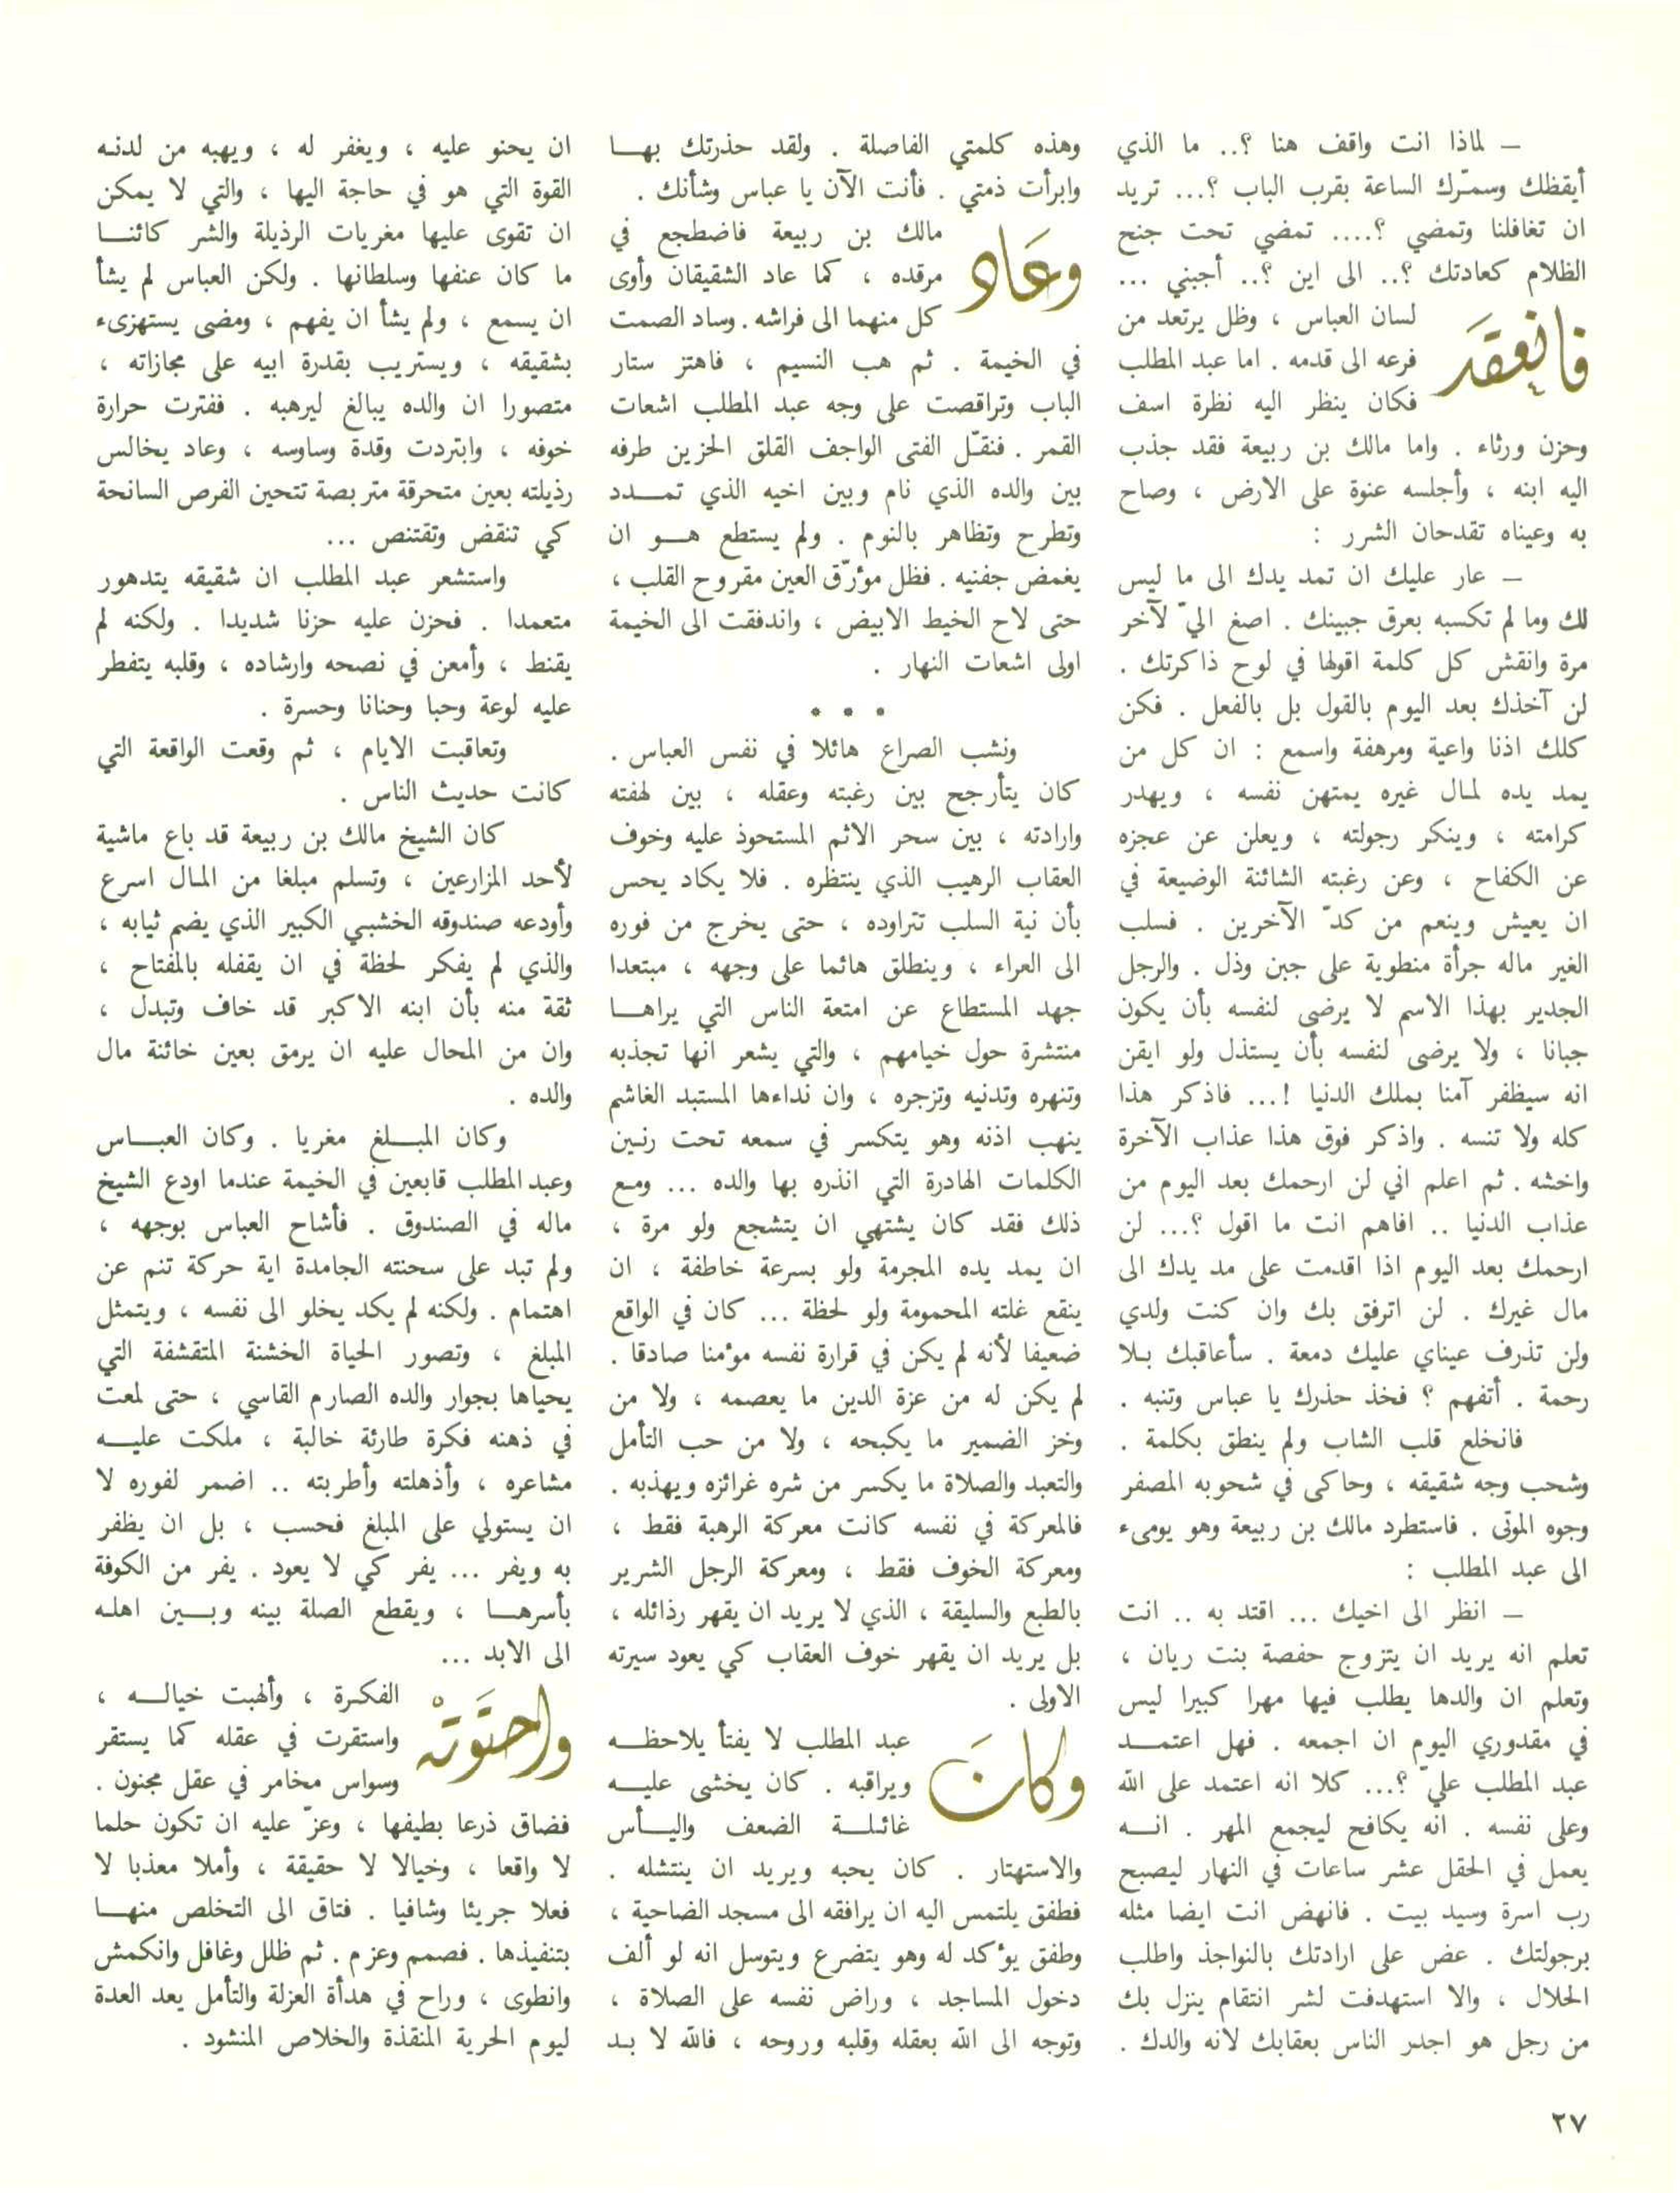 ـ لماذا انت واقف هنا ؟.. ما الذي
أيقظك وسمّرك الساعة بقرب الباب ؟... تريد
ان تغافلنا وتمضي ؟.... تمضي تحت جنح
الظلام كعادتك ؟.. الى اين ؟.. أجبني ...
فانعقد لسان العباس ، وظل يرتعد من
فرعه الى قدمه . اما عبد المطلب
فكان ينظر اليه نظرة اسف
وحزن ورثاء . واما مالك بن ربيعة فقد جذب
اليه ابنه ، وأجلسه عنوة على الارض ، وصاح
به وعيناه تقدحان الشرر :
ـ عار عليك ان تمد يدك الى ما ليس
لك وما لم تكسبه بعرق جبينك . اصغ اليّ لآخر
مرة وانقش كل كلمة اقولها في لوح ذاكرتك .
لن آخذك بعد اليوم بالقول بل بالفعل . فكن
كلك اذنا واعية ومرهفة واسمع : ان كل من
يمد يده لمال غيره يمتهن نفسه ، ويهدر
كرامته ، وينكر رجولته ، ويعلن عن عجزه
عن الكفاح ، وعن رغبته الشائنة الوضيعة في
ان يعيش وينعم من كدّ الآخرين . فسلب
الغير ماله جرأة منطوية على جبن وذل . والرجل
الجدير بهذا الاسم لا يرضى لنفسه بأن يكون
جبانا ، ولا يرضى لنفسه بأن يستذل ولو ايقن
انه سيظفر آمنا بملك الدنيا !... فاذكر هذا
كله ولا تنسه . واذكر فوق هذا عذاب الآخرة
واخشه . ثم اعلم اني لن ارحمك بعد اليوم من
عذاب الدنيا .. افاهم انت ما اقول ؟... لن
ارحمك بعد اليوم اذا اقدمت على مد يدك الى
مال غيرك . لن اترفق بك وان كنت ولدي
ولن تذرف عيناي عليك دمعة . سأعاقبك بلا
رحمة . أتفهم ؟ فخذ حذرك يا عباس وتنبه .
فانخلع قلب الشاب ولم ينطق بكلمة .
وشحب وجه شقيقه ، وحاكى في شحوبه المصفر
وجوه الموتى . فاستطرد مالك بن ربيعة وهو يومىء
الى عبد المطلب :
ـ انظر الى اخيك ... اقتد به .. انت
تعلم انه يريد ان يتزوج حفصة بنت ريان ،
وتعلم ان والدها يطلب فيها مهرا كبيرا ليس
في مقدوري اليوم ان اجمعه . فهل اعتمد
عبد المطلب عليّ ؟... كلا انه اعتمد على الله
وعلى نفسه . انه يكافح ليجمع المهر . انه
يعمل في الحقل عشر ساعات في النهار ليصبح
رب اسرة وسيد بيت . فانهض انت ايضا مثله
برجولتك . عض على ارادتك بالنواجذ واطلب
الحلال ، والا استهدفت لشر انتقام ينزل بك
من رجل هو اجدر الناس بعقابك لانه والدك .
وهذه كلمتي الفاصلة . ولقد حذرتك بها
وابرأت ذمتي . فأنت الآن يا عباس وشأنك .
وعاد مالك بن ربيعة فاضطجع في
مرقده ، كما عاد الشقيقان وأوى
كل منهما الى فراشه . وساد الصمت
في الخيمة . ثم هب النسيم ، فاهتز ستار
الباب وتراقصت على وجه عبد المطلب اشعات
القمر . فنقّل الفتى الواجف القلق الحزين طرفه
بين والده الذي نام وبين اخيه الذي تمدد
وتطرح وتظاهر بالنوم . ولم يستطع هو ان
يغمض جفنيه . فظل مؤرّق العين مقروح القلب ،
حتى لاح الخيط الابيض ، واندفقت الى الخيمة
اولى اشعات النهار .
* * *
ونشب الصراع هائلا في نفس العباس .
كان يتأرجح بين رغبته وعقله ، بين لهفته
وارادته ، بين سحر الاثم المستحوذ عليه وخوف
العقاب الرهيب الذي ينتظره . فلا يكاد يحس
بأن نية السلب تتراوده ، حتى يخرج من فوره
الى العراء ، وينطلق هائما على وجهه ، مبتعدا
جهد المستطاع عن امتعة الناس التي يراها
منتشرة حول خيامهم ، والتي يشعر انها تجذبه
وتنهره وتدنيه وتزجره ، وان نداءها المستبد الغاشم
ينهب اذنه وهو يتكسر في سمعه تحت رنين
الكلمات الهادرة التي انذره بها والده ... ومع
ذلك فقد كان يشتهي ان يتشجع ولو مرة ،
ان يمد يده المجرمة ولو بسرعة خاطفة ، ان
ينقع غلته المحمومة ولو لحظة ... كان في الواقع
ضعيفا لأنه لم يكن في قرارة نفسه مؤمنا صادقا .
لم يكن له من عزة الدين ما يعصمه ، ولا من
وخز الضمير ما يكبحه ، ولا من حب التأمل
والتعبد والصلاة ما يكسر من شره غرائزه ويهذبه .
فالمعركة في نفسه كانت معركة الرهبة فقط ،
ومعركة الخوف فقط ، ومعركة الرجل الشرير
بالطبع والسليقة ، الذي لا يريد ان يقهر رذائله ،
بل يريد ان يقهر خوف العقاب كي يعود سيرته
الاولى .
وكان عبد المطلب لا يفتأ يلاحظه
ويراقبه . كان يخشى عليه
غائلة الضعف واليأس
والاستهتار . كان يحبه ويريد ان ينتشله .
فطفق يلتمس اليه ان يرافقه الى مسجد الضاحية ،
وطفق يؤكد له وهو يتضرع ويتوسل انه لو ألف
دخول المساجد ، وراض نفسه على الصلاة ،
وتوجه الى الله بعقله وقلبه وروحه ، فالله لا بد
ان يحنو عليه ، ويغفر له ، ويهبه من لدنه
القوة التي هو في حاجة اليها ، والتي لا يمكن
ان تقوى عليها مغريات الرذيلة والشر كائنا
ما كان عنفها وسلطانها . ولكن العباس لم يشأ
ان يسمع ، ولم يشأ ان يفهم ، ومضى يستهزىء
بشقيقه ، ويستريب بقدرة ابيه على مجازاته ،
متصورا ان والده يبالغ ليرهبه . ففترت حرارة
خوفه ، وابتردت وقدة وساوسه ، وعاد يخالس
رذيلته بعين متحرقة متربصة تتحين الفرص السانحة
كي تنقض وتقتنص ...
واستشعر عبد المطلب ان شقيقه يتدهور
متعمدا . فحزن عليه حزنا شديدا . ولكنه لم
يقنط ، وأمعن في نصحه وارشاده ، وقلبه يتفطر
عليه لوعة وحبا وحنانا وحسرة .
وتعاقبت الايام ، ثم وقعت الواقعة التي
كانت حديث الناس .
كان الشيخ مالك بن ربيعة قد باع ماشية
لأحد المزارعين ، وتسلم مبلغا من المال اسرع
وأودعه صندوقه الخشبي الكبير الذي يضم ثيابه ،
والذي لم يفكر لحظة في ان يقفله بالمفتاح ،
ثقة منه بأن ابنه الاكبر قد خاف وتبدل ،
وان من المحال عليه ان يرمق بعين خائنة مال
والده .
وكان المبلغ مغريا . وكان العباس
وعبد المطلب قابعين في الخيمة عندما اودع الشيخ
ماله في الصندوق . فأشاح العباس بوجهه ،
ولم تبد على سحنته الجامدة اية حركة تنم عن
اهتمام . ولكنه لم يكد يخلو الى نفسه ، ويتمثل
المبلغ ، وتصور الحياة الخشنة المتقشفة التي
يحياها بجوار والده الصارم القاسي ، حتى لمعت
في ذهنه فكرة طارئة خالبة ، ملكت عليه
مشاعره ، وأذهلته وأطربته .. اضمر لفوره لا
ان يستولي على المبلغ فحسب ، بل ان يظفر
به ويفر ... يفر كي لا يعود . يفر من الكوفة
بأسرها ، ويقطع الصلة بينه وبين اهله
الى الابد ...
واحتوته الفكرة ، وألهبت خياله ،
واستقرت في عقله كما يستقر
وسواس مخامر في عقل مجنون .
فضاق ذرعا بطيفها ، وعزّ عليه ان تكون حلما
لا واقعا ، وخيالا لا حقيقة ، وأملا معذبا لا
فعلا جريئا وشافيا . فتاق الى التخلص منها
بتنفيذها . فصمم وعزم . ثم ظلل وغافل وانكمش
وانطوى ، وراح في هدأة العزلة والتأمل يعد العدة
ليوم الحرية المنقذة والخلاص المنشود .
٢٧